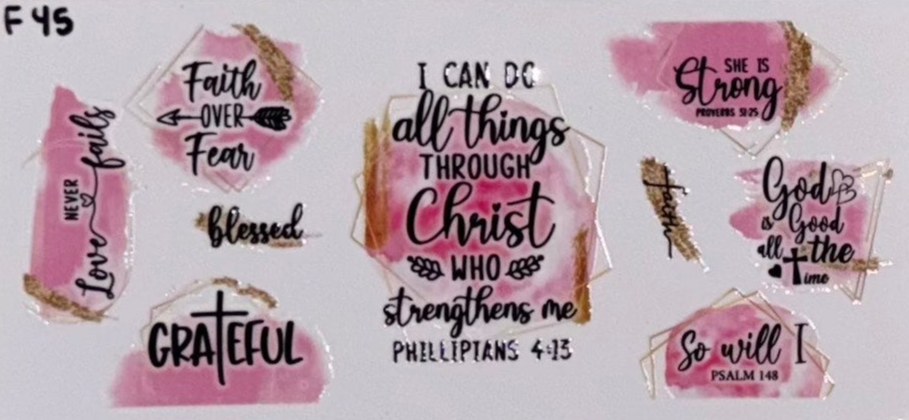 F 45
Faith
OVER
Fear
Love NEVER fails
blessed
GRATEFUL
I CAN DO
all things
THROUGH
Christ
WHO
strengthens me
PHILLIPIANS 4:13
SHE IS
Strong
PROVERBS 31:25
faith
God
is Good
all the
time
So will I
PSALM 148